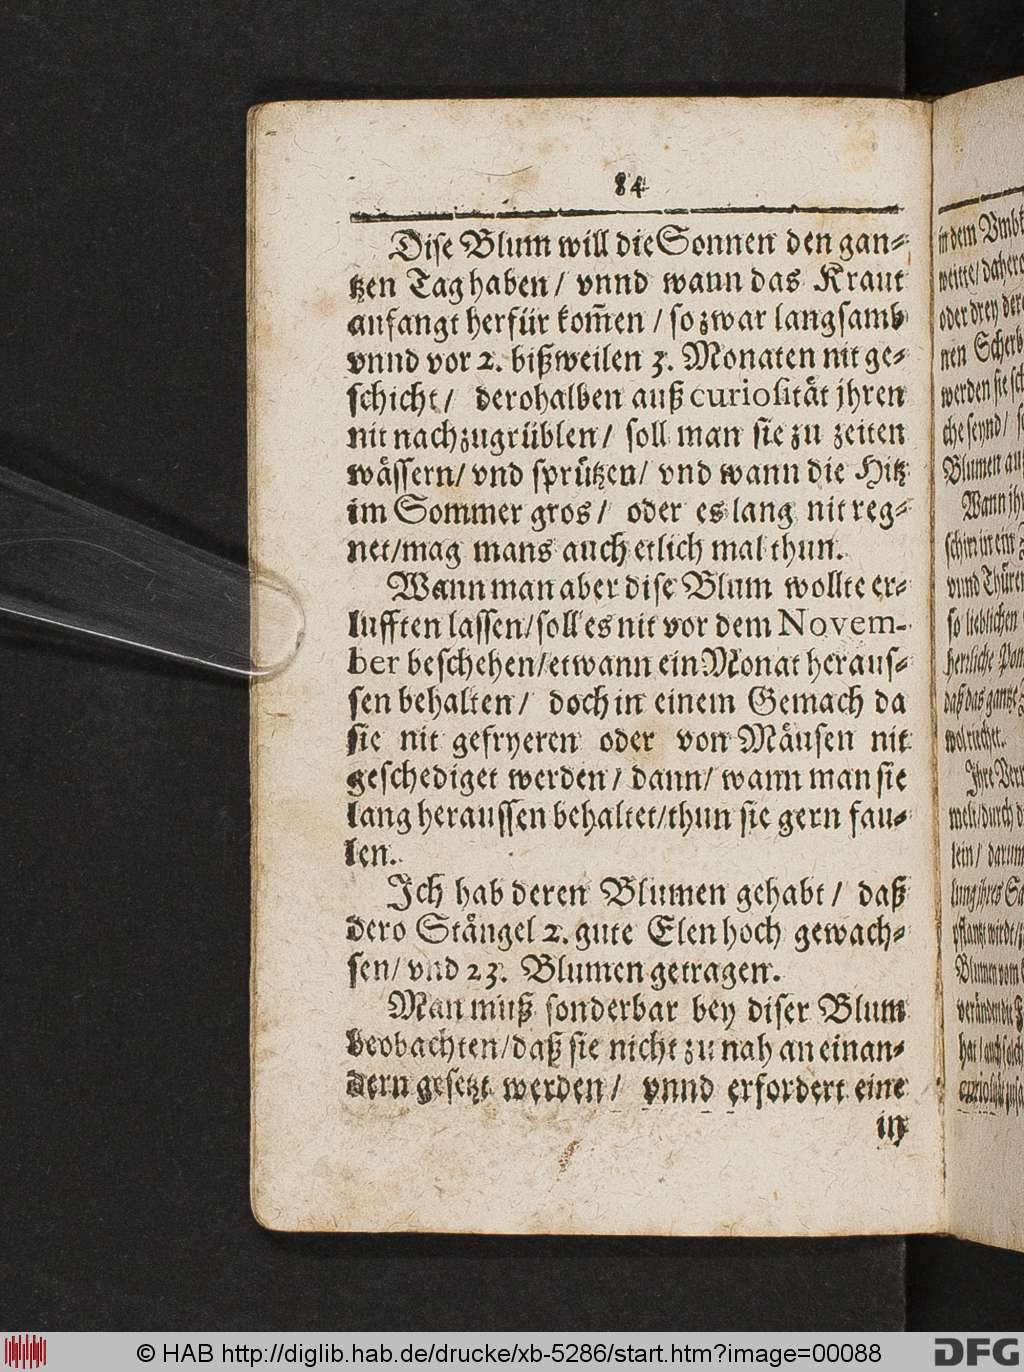 84
Dise Blum will die Sonnen den gan-
tzen Tag haben / vnnd wann das Kraut
anfangt herfür kom̃en / so zwar langsamb
vnnd vor 2. bißweilen 3. Monaten nit ge-
schicht / derohalben auß curiosität jhren
nit nachzugrüblen / soll man sie zu zeiten
wässern / vnd sprützen / vnd wann die Hitz
im Sommer gros / oder es lang nit reg-
net / mag mans auch etlich mal thun.
Wann man aber dise Blum wollte er-
lufften lassen / soll es nit vor dem Novem-
ber beschehen / etwann ein Monat heraus-
sen behalten / doch in einem Gemach da
sie nit gefryeren oder von Mäusen nit
geschediget werden / dann / wann man sie
lang heraussen behaltet / thun sie gern fau-
len.
Ich hab deren Blumen gehabt / daß
dero Stängel 2. gute Elen hoch gewach-
sen / vnd 23. Blumen getragen.
Man muß sonderbar bey diser Blum
beobachten / daß sie nicht zu nah an einan-
dern gesetzt werden / vnnd erfordert eine
in
in dem Vmb
weitte / daher
oder drey der
nen Scherb
werden sie sch
che seynd / s
Blumen au
Wann jh
schirr in ein
vnnd Thüren
so lieblichen
herrliche Pom
daß das gantze
wol riechet.
Ihre Ver
melt / durch d
lein / darum
lung jhres Sa
pflantzt wirdt /
Blumen vom
verändert die F
hat / auch solch
curiosität zu
© HAB http://diglib.hab.de/drucke/xb-5286/start.htm?image=00088
DFG